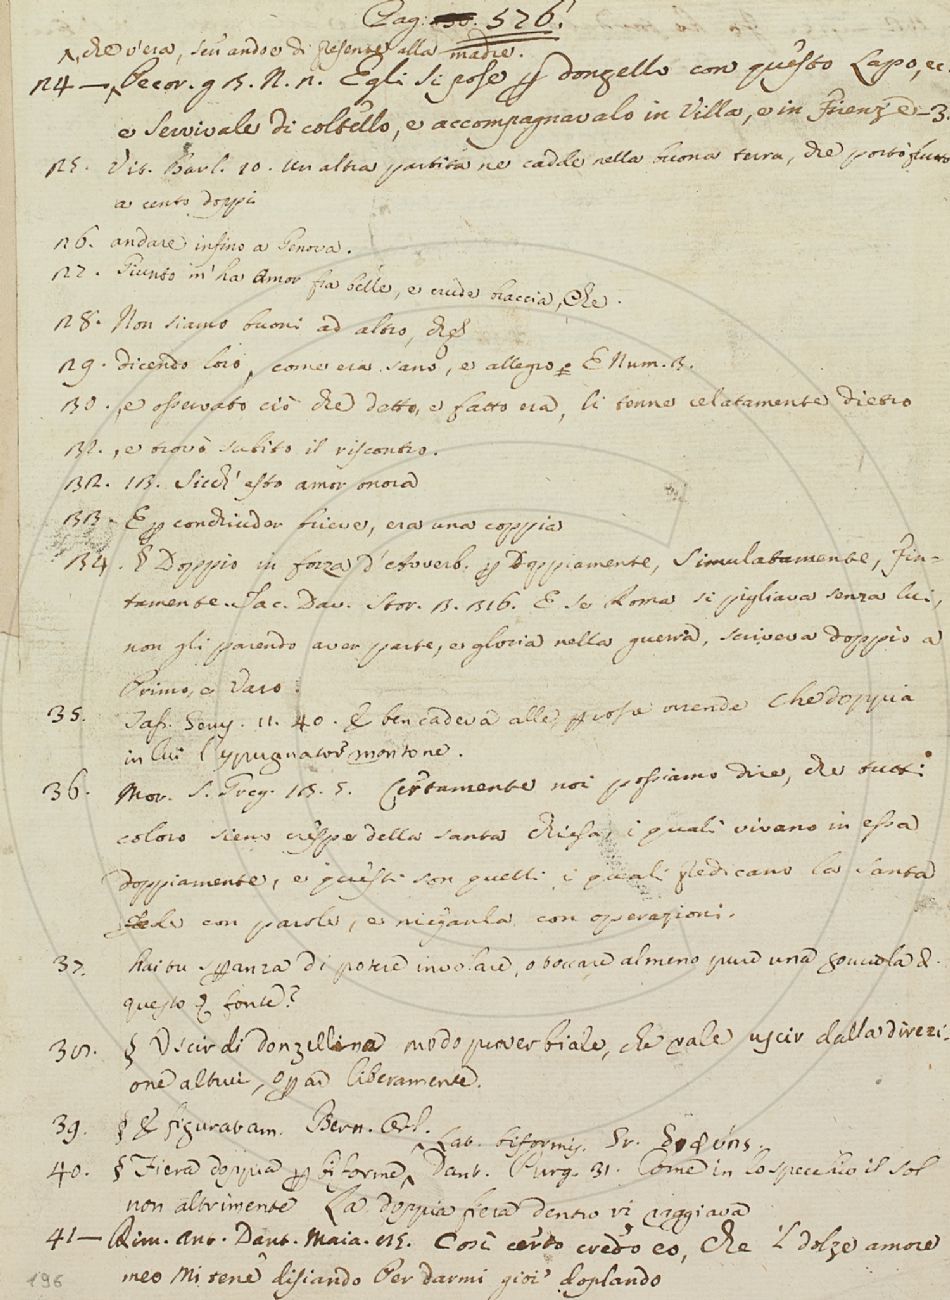 Pag. 526.
, che v'era, scusandosi di presente alla madre.
124 — Pecor. g 13. N. n. Egli si pose p donzello con questo Lapo, ec.
e servivalo di coltello, e accompagnavalo in Villa, e in Firenze — 3.
125. Vit. Barl. 10. Un altra partita ne cadde nella buona terra, che portò frutto
a cento doppi
126. andare infino a Genova.
127. Giunto m'ha Amor fra belle, e crude braccia, Che
128. Non siamo buoni ad altro, che
129. dicendo loro, come era sano, e allegro E Num. 13.
130. , e osservato ciò che detto, e fatto era, li tenne celatamente dietro
131. , e trovò subito il riscontro.
132. 113. Sicch' esto amor onora
133. E p conchiuder brieve, era una coppia
134. § Doppio in forza d'Avverb. p Doppiamente, Simulatamente, Fin-
tamente. Tac. Dav. Stor. 13. 316. E se Roma si pigliava senza lui,
non gli parendo aver parte, e gloria nella guerra, scriveva doppio a
Primo, e Varo:
35. Tass. Ger. 11. 40. E ben cadeva alle pcosse orrende Che doppia
in lui l'espugnator montone.
36. Mor. S. Greg. 13. 5. Certamente noi possiamo dire, che tutti
coloro sieno crespe della santa Chiesa, i quali vivano in essa
doppiamente, e questi son quelli i quali predicano la santa
fede con parole, e nieganla con operazioni.
37. Hai tu spanza di potere involare, o toccare almeno pure una gocciola di
questo fonte?
38. § Uscir di donzellina modo proverbiale, che vale uscir dalla direzi-
one altrui, opar liberamente.
39. § E figuratam. Bern. Orl.
Lat. biformis. Gr.
40. § Fiera doppia p biforme, Dant. Purg. 31. Come in lo specchio il sol
non altrimente La doppia fiera dentro vi raggiava
41 — Rim. Ant. Dant. Maia. 85. Così certo credo eo, Che 'l dolze amore
meo Mi tene disiando Per darmi gioi' doplando
196